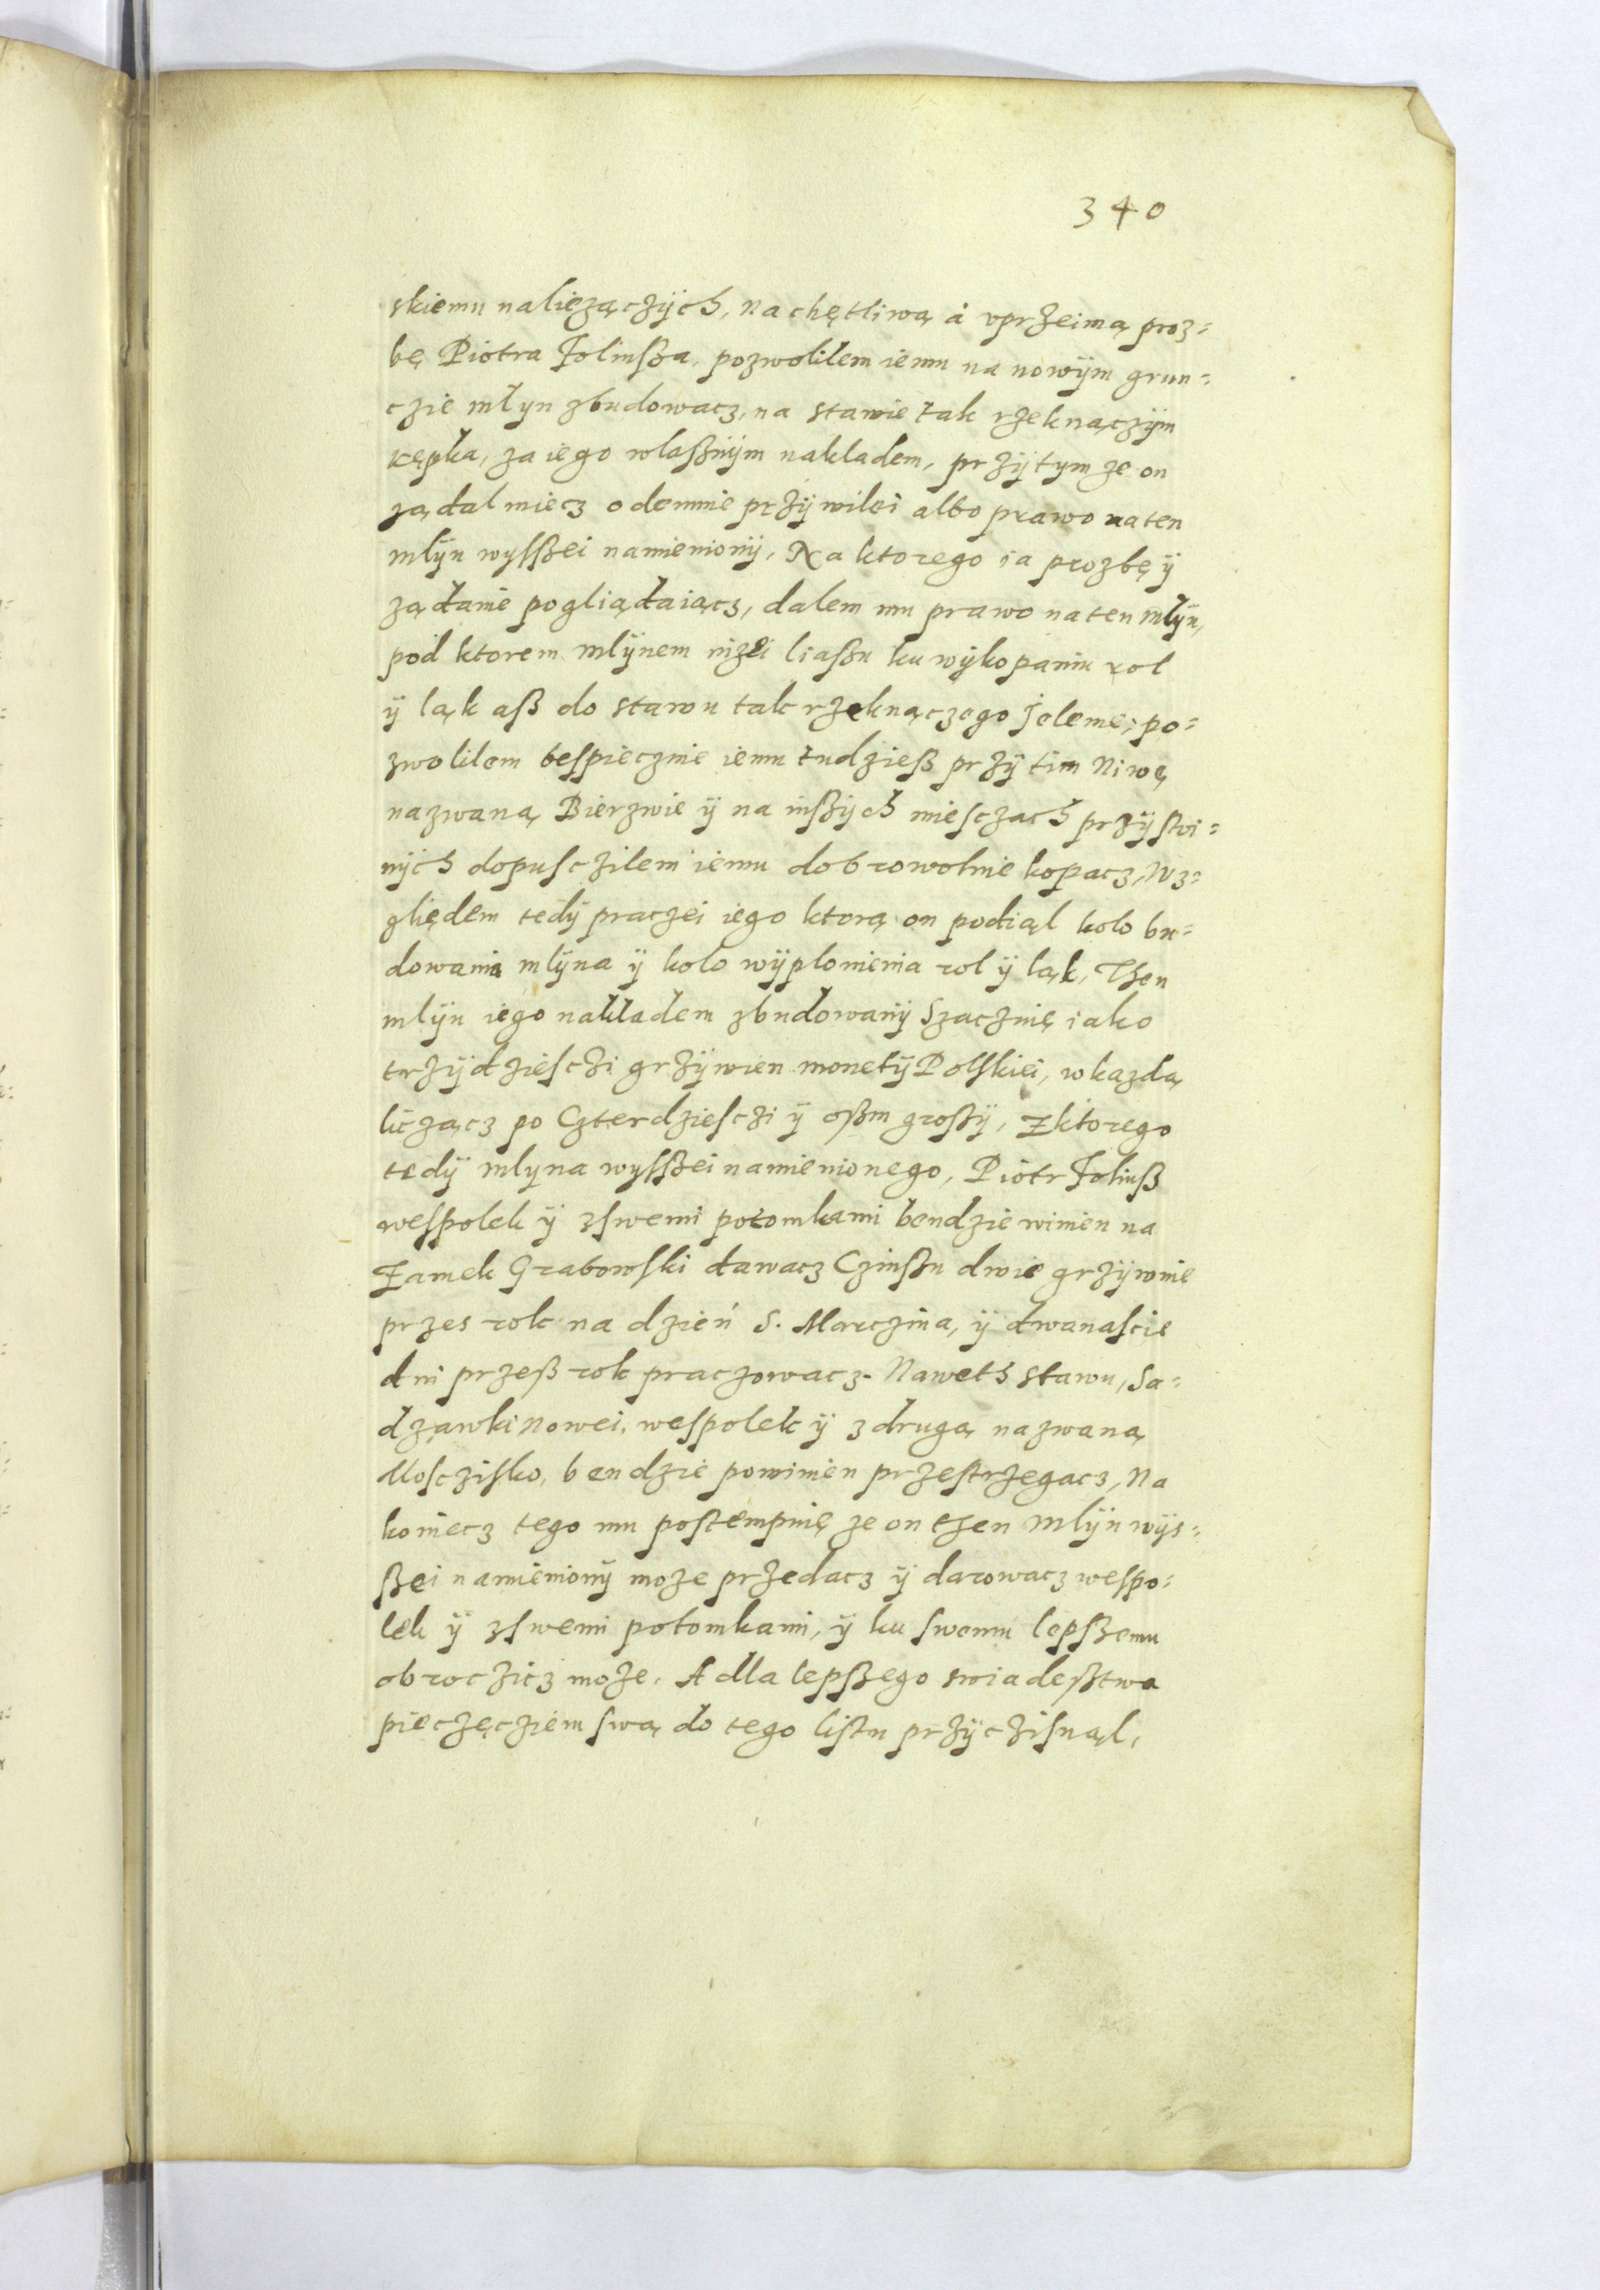 340
skiemu należączÿch, na chętliwą á vprzeimą proz=
bę Piotra Folinsza, pozwoliłem iemu na nowÿm grun=
czie młyn zbudowacz, na stawie tak rzeknączÿm
Kępka, za iego wlasznÿm nakladem, przÿtym ze on
ządal miecz odemnie przÿwilei albo prawo na ten
mlÿn wysszei namienionÿ, Na ktorego ia prozbę ÿ
ządanie pogliądaiącz, dalem mu prawo na ten mlÿn,
pod ktorem mlÿnem nizei liassu ku wÿkopaniu rol
ÿ ląk asz do stawu tak rzeknączego Jeleme, po=
zwolilem bespiecznie iemu tudziesz przÿ tim Niwę
nazwaną Bierzwie ÿ na inszÿch miesczach przÿstoi=
nÿch dopusczilem iemu dobrowolnie kopacz, Wz=
ględem tedÿ praczei iego ktorą on podiąl kolo bu=
dowania mlÿna ÿ kolo wÿplonienia rol ÿ ląk, Then
mlÿn iego nakladem zbudowanÿ Szacznię iako
trzÿdziesczi grzÿwien monetÿ Polskiei, w kazdą
licząc̨z po Czterdziesczi ÿ oszm groszÿ, Z ktorego
tedÿ mlyna wysszei namienionego, Piotr Folinsz
wespolek ÿ zswemi potomkami bendzie winien na
Zamek Grabowski dawacz Czinszu dwie grzÿwnie
przes rok na dzień S. Marczina, ÿ dwanascie
dni przesz rok praczowacz. Naweth stawu, Sa=
dzawki nowei, wespolek ÿ z drugą nazwaną
Mosczisko, bendzie powinien przestrzegacz, Na
koniecz tego mu postempuię ze on then mlÿn wÿs=
szei namienionÿ moze przedacz ÿ darowacz wespo=
lek ÿ zswemi potomkami, ÿ ku swemu lepszemu
obroczicz moze. A dla lepszego swiadesztwa
pieczęcziem swą do tego listu przÿczisnąl,